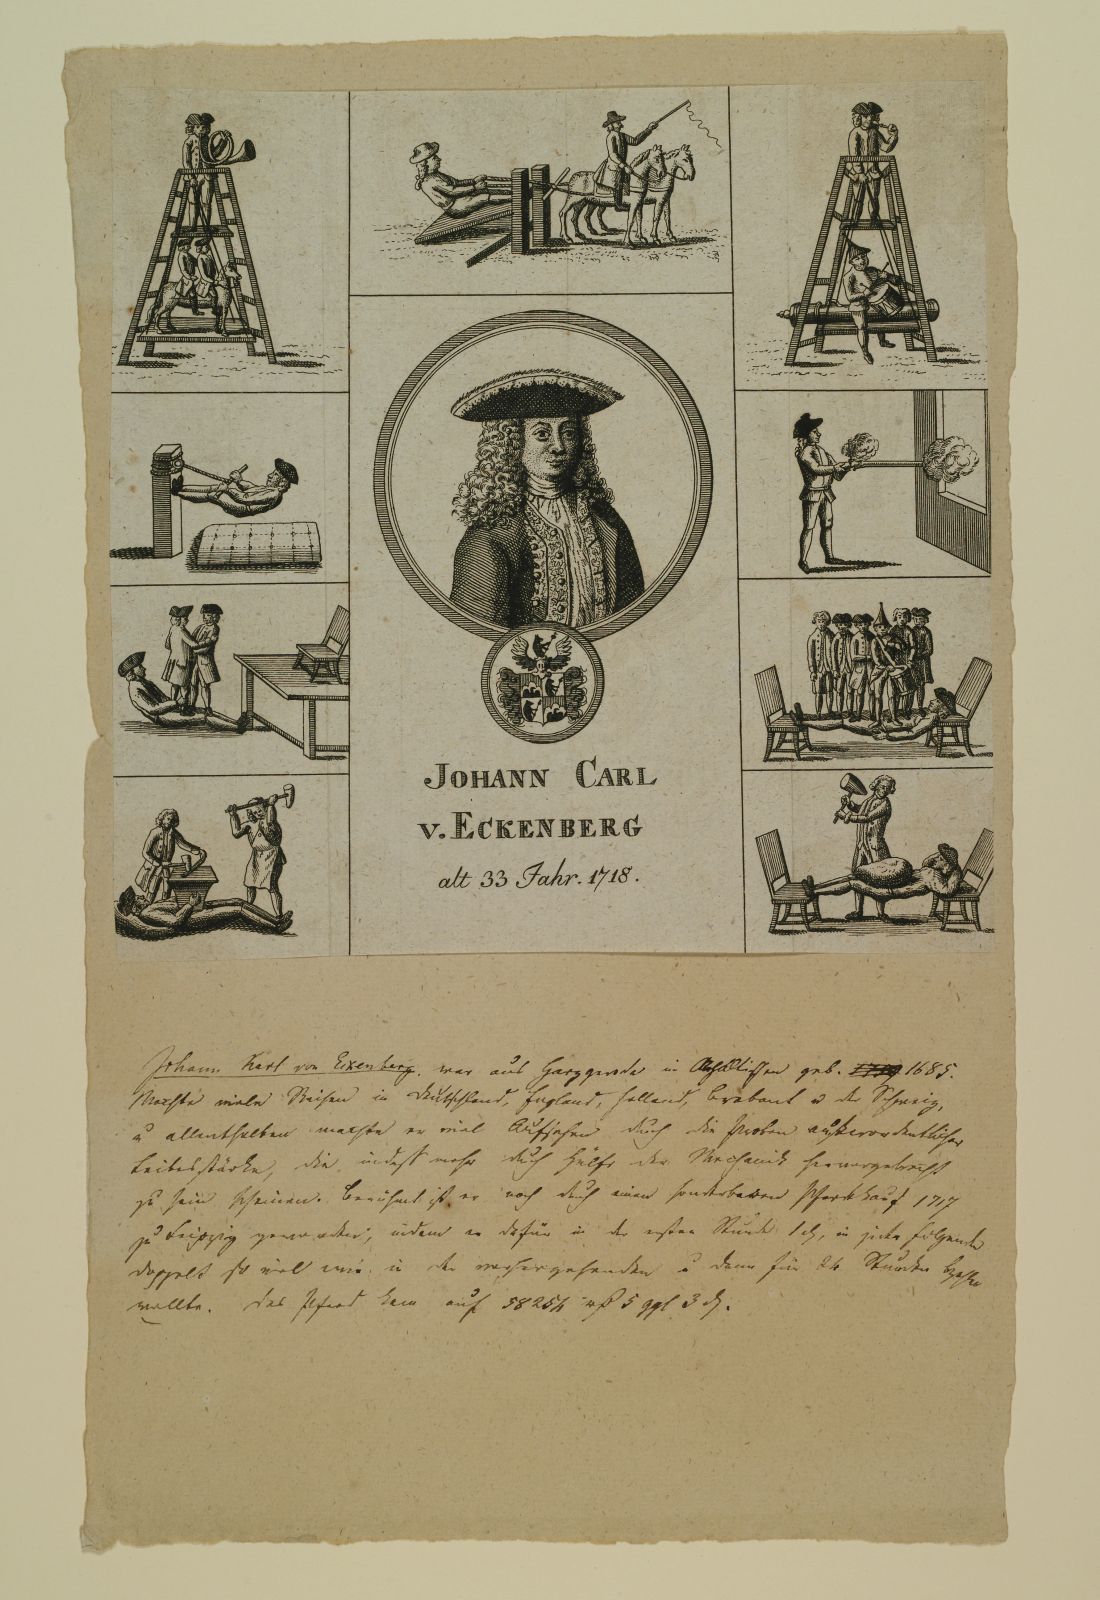 JOHANN CARL
v. ECKENBERG
alt 33 Jahr. 1718.
Johann Karl von Eckenberg, war aus Harzgerode in geb. 1685.
Machte viele Reisen in Deutschland, England, Holland, Brabant u der Schweiz,
u allenthalben machte er viel Aufsehen durch die Proben außerordentlicher
Leibesstärke, die indeß mehr durch Hülfe der Mechanik hervorgebracht
zu sein scheinen. Berühmt ist er noch durch einen sonderbaren Pferdekauf 1717
zu Leipzig geworden, indem er dafür in der ersten Stunde 1 in jeder folgenden
doppelt so viel wie in der vorhergehenden u dann für 24 Stunden
wollte. Das Pferd kam auf 5 ggl 3